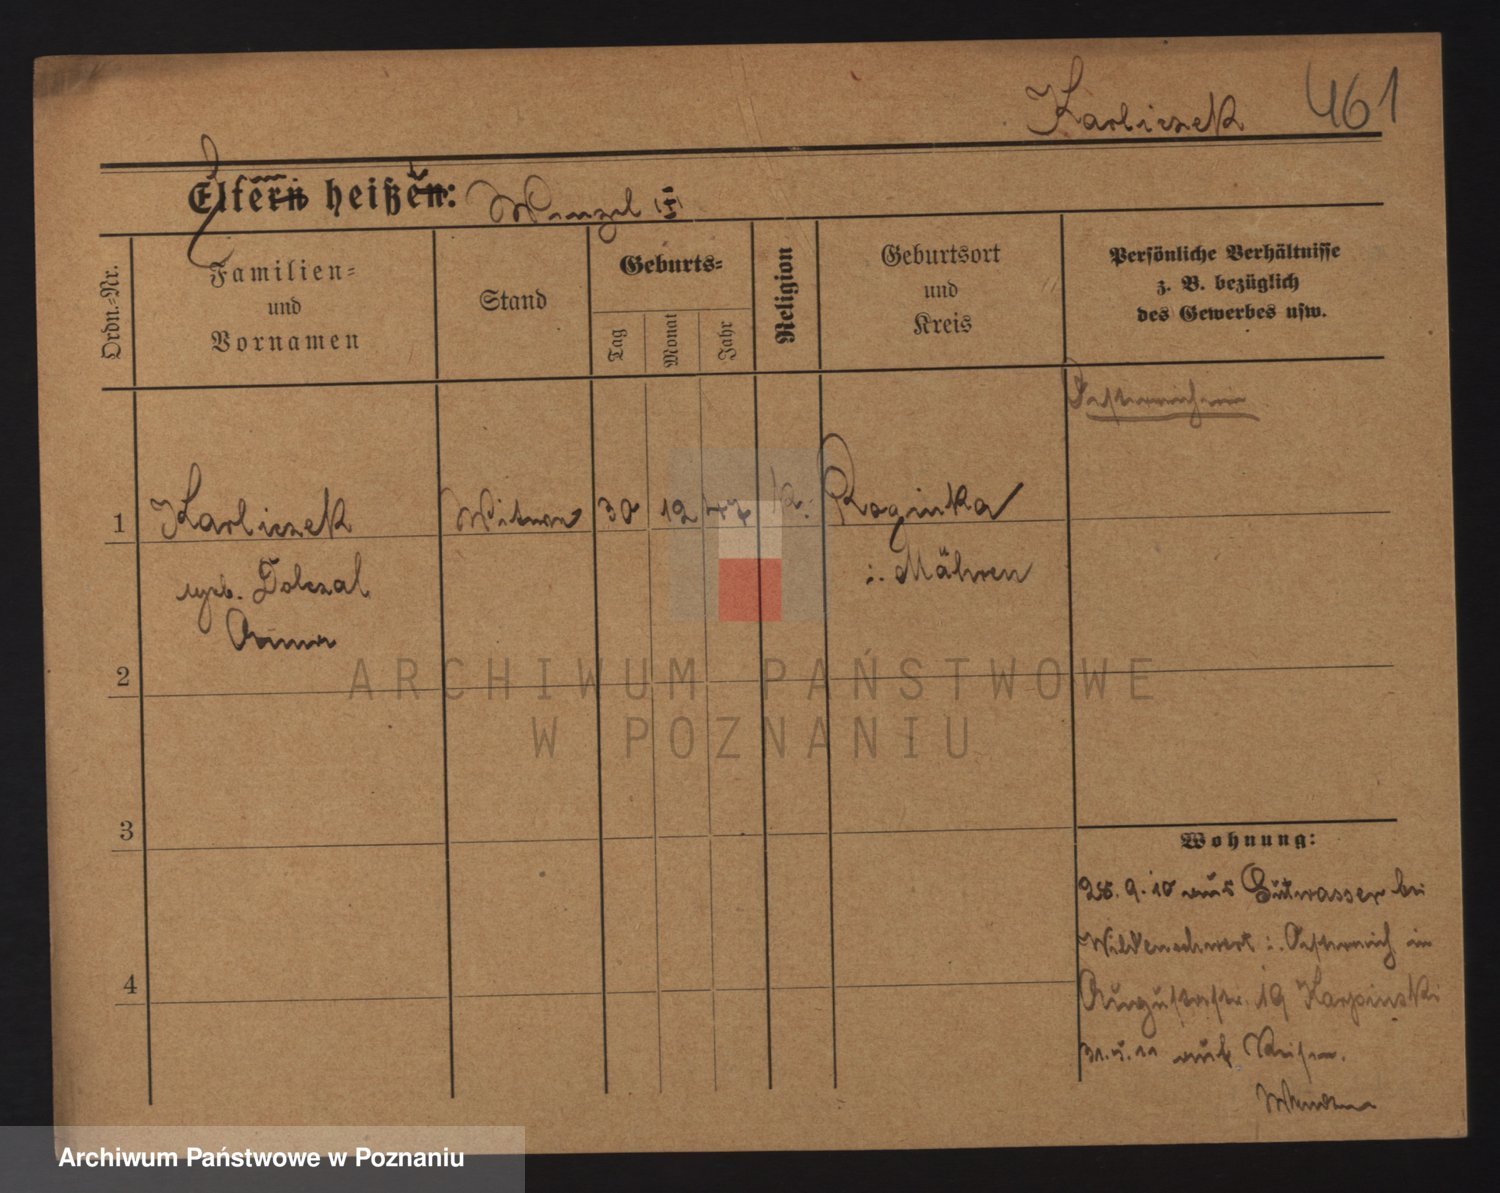 Karliczek 461
Eltern heißen: Wenzel
Ordn.-Nr.
Familien=
und
Vornamen
Stand
Geburts=
Tag
Monat
Jahr
Religion
Geburtsort
und
Kreis
Persönliche Verhältnisse
z. B. bezüglich
des Gewerbes usw.
Österreicherin
1 Karliczek Witwe 30 12 47 k. Roginka
geb. Dolezal i. Mähren
Anna
2
3
4
Wohnung:
28. 9. 10 aus Gutwasser bei
Wildenschwert i. Österreich in
Augustastr. 19 Karpinski
31. 5. 11 auf Reisen.
ARCHIWUM PAŃSTWOWE
W POZNANIU
Archiwum Państwowe w Poznaniu